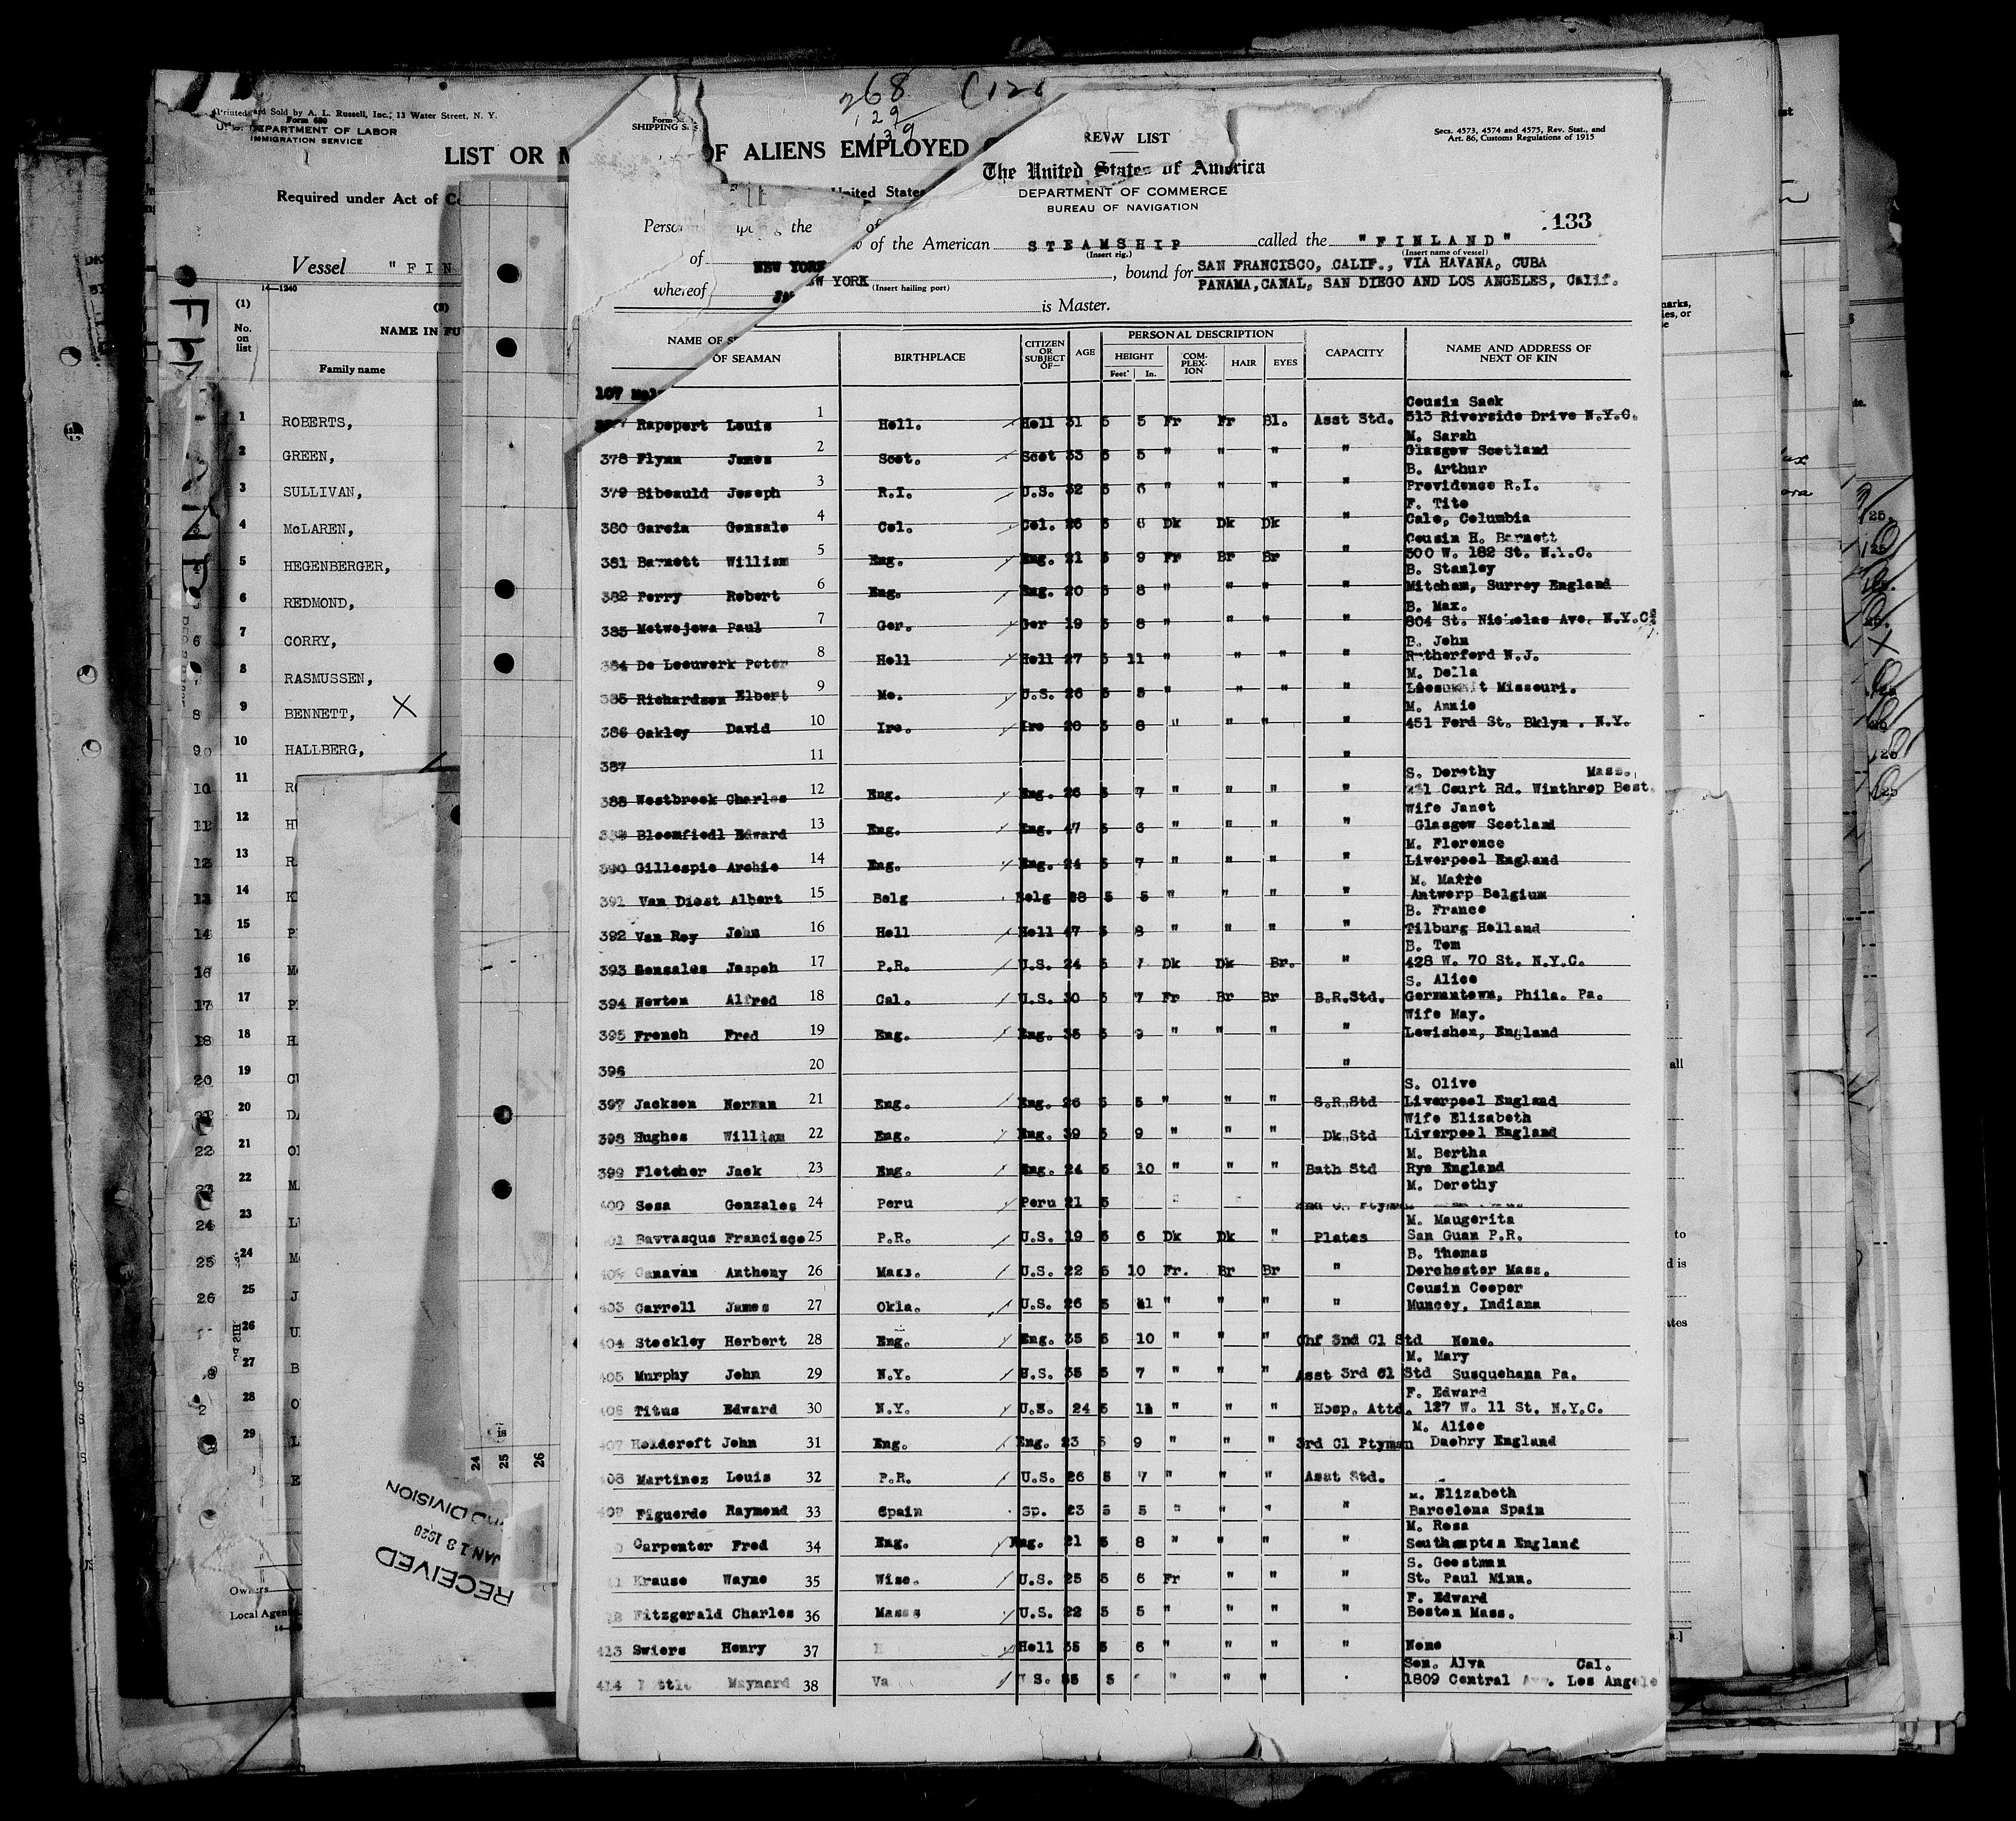 Printed and Sold by A. L. Russell, Inc., 13 Water Street, N. Y.
Form 680
U. S. DEPARTMENT OF LABOR
IMMIGRATION SERVICE
LIST OR
OF ALIENS EMPLOYED
Required under Act of
United States
Vessel "FIN
14—1240
(1)
(2)
No. on list
NAME IN FU
Family name
FINLAND
1 ROBERTS,
2 GREEN,
3 SULLIVAN,
4 McLAREN,
5 HEGENBERGER,
6 REDMOND,
7 CORRY,
8 RASMUSSEN,
9 BENNETT, X
10 HALLBERG,
11
12
13
14
15
16
17
18
19
20
21
22
23
24
25
26
27
28
29
Owners
Local Agen
24 25 26
is
DIVISION
JAN 13 1926
RECEIVED
268
129
139
Form
SHIPPING S.
REW LIST
Secs. 4573, 4574 and 4575, Rev. Stat., and
Art. 86, Customs Regulations of 1915
The United States of America
DEPARTMENT OF COMMERCE
BUREAU OF NAVIGATION
133
the
of the American STEAMSHIP called the "FINLAND"
(Insert rig.) (Insert name of vessel)
of NEW YORK
EW YORK , bound for SAN FRANCISCO, CALIF., VIA HAVANA, CUBA
whereof (Insert hailing port) PANAMA,CANAL, SAN DIEGO AND LOS ANGELES, Calif.
is Master.
NAME OF SE
OF SEAMAN
BIRTHPLACE
CITIZEN OR SUBJECT OF—
AGE
PERSONAL DESCRIPTION
HEIGHT
Feet In.
COM-PLEX-ION
HAIR
EYES
CAPACITY
NAME AND ADDRESS OF NEXT OF KIN
107
Cousin Sack
Rapepert Louis 1 Holl. Holl 31 5 5 Fr Fr Bl. Asst Std. 513 Riverside Drive N.Y.C.
M. Sarah
378 Flynn James 2 Scot. Scot 33 5 5 " " " " Glasgow Scotland
B. Arthur
379 Bibeauld Joseph 3 R.I. U.S. 32 5 6 " " " " Providence R.I.
F. Tito
380 Garcia Gonzalo 4 Col. Col. 26 5 6 Dk Dk Dk " Cale, Columbia
Cousin H. Barnett
381 Barnett William 5 Eng. Eng. 21 5 9 Fr Br Br " 500 W. 182 St. N.Y.C.
B. Stanley
382 Perry Robert 6 Eng. Eng. 20 5 8 " " " " Mitcham, Surrey England
B. Max.
383 Motwejewa Paul 7 Ger. Ger 19 5 8 " " " " 804 St. Nicholas Ave. N.Y.C
B. John
384 De Leeuwerk Peter 8 Holl Holl 27 5 11 " " " " Rutherford N.J.
M. Della
385 Richardson Elbert 9 Mo. U.S. 26 5 5 " " " " Missouri.
M. Annie
386 Oakley David 10 Ire. Ire 20 5 8 " " " " 451 Ford St. Bklyn . N.Y.
387 11 "
S. Dorothy Mass.
388 Westbrook Charles 12 Eng. Eng. 26 5 7 " " " " Court Rd. Winthrop Bost.
Wife Janet
389 Bloomfiedl Edward 13 Eng. Eng. 47 5 6 " " " " Glasgow Scotland
M. Florence
390 Gillespie Archie 14 Eng. Eng. 24 5 7 " " " " Liverpool England
M. Maire
391 Van Diest Albert 15 Belg Belg 28 5 5 " " " " Antwerp Belgium
B. France
392 Van Roy John 16 Holl Holl 47 5 8 " " " " Tilburg Holland
B. Tom
393 Gonzales Jospeh 17 P.R. U.S. 24 5 7 Dk Dk Br. " 428 W. 70 St. N.Y.C.
S. Alice
394 Newton Alfred 18 Cal. U.S. 30 5 7 Fr Br Br B.R.Std. Germantown, Phila. Pa.
Wife May.
395 French Fred 19 Eng. Eng. 35 5 9 " " " " Lewishon, England
396 20 "
S. Olive
397 Jackson Norman 21 Eng. Eng. 26 5 5 " " " S.R.Std Liverpool England
Wife Elizabeth
398 Hughes William 22 Eng. Eng. 39 5 9 " " " Dk Std Liverpool England
M. Bertha
399 Fletcher Jack 23 Eng. Eng. 24 5 10 " " " Bath Std Rye England
M. Dorothy
400 Sosa Gonzales 24 Peru Peru 21 5
M. Maugerita
401 Bavrasqus Francisco 25 P.R. U.S. 19 5 6 Dk Dk " Plates San Guan P.R.
B. Thomas
402 Canavan Anthony 26 Mass. U.S. 22 5 10 Fr. Br Br " Dorchester Mass.
Cousin Cooper
403 Carroll James 27 Okla. U.S. 26 5 11 " " " " Muncey, Indiana
404 Stockley Herbert 28 Eng. Eng. 35 5 10 " " " Chf 3nd Cl Std None.
M. Mary
405 Murphy John 29 N.Y. U.S. 35 5 7 " " " Asst 3rd Cl Std Susquehana Pa.
F. Edward
406 Titus Edward 30 N.Y. U.S. 24 5 11 " " " Hosp. Attd. 127 W. 11 St. N.Y.C.
M. Alice
407 Holdcroft John 31 Eng. Eng. 23 5 9 " " " 3rd Cl Ptyman Daebry England
408 Martinez Louis 32 P.R. U.S. 26 5 7 " " " Asst Std.
M. Elizabeth
409 Figuerdo Raymond 33 Spain Sp. 23 5 5 " " " " Barcelona Spain
M. Rosa
Carpenter Fred 34 Eng. Eng. 21 5 8 " " " " Southampton England
S. Goostman
Krause Wayne 35 Wisc. U.S. 25 5 6 Fr " " " St. Paul Minn.
F. Edward
Fitzgerald Charles 36 Masss U.S. 22 5 5 " " " " Boston Mass.
413 Swiers Henry 37 Holl 35 5 6 " " " " None
Son. Alva Cal.
414 Maynard 38 Va U.S. 35 5 " " " 1809 Central Av. Los Angele